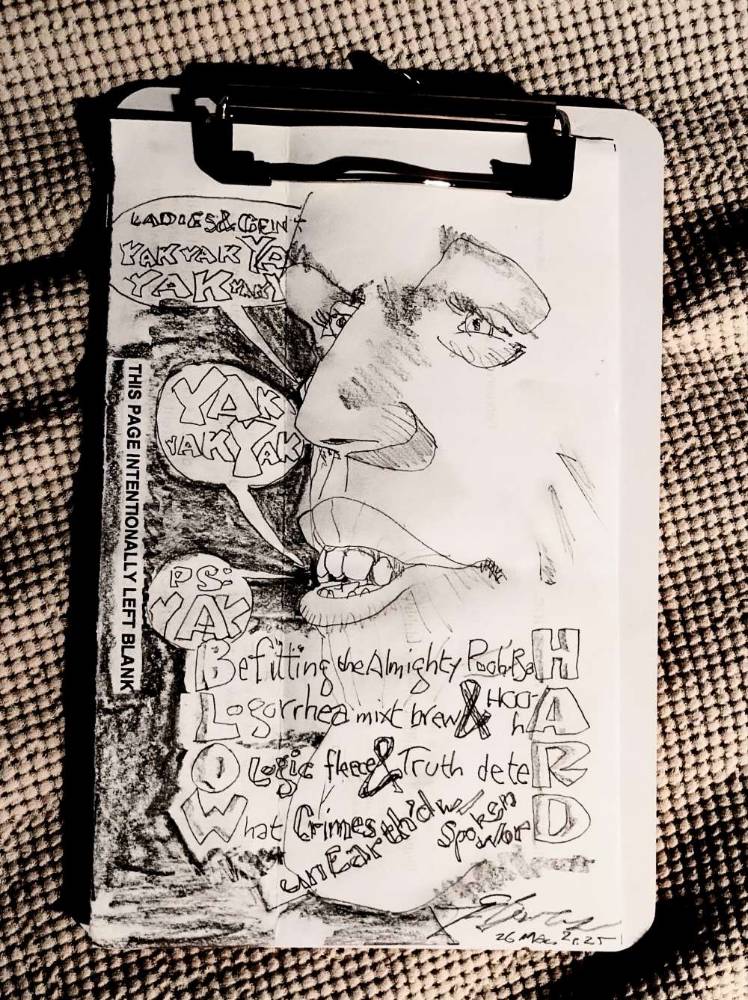 LADIES & GENT
YAK YAK YA
YAK YAK Y
YAK
YAK YAK
PS:
YAK
THIS PAGE INTENTIONALLY LEFT BLANK
Befitting the Almighty Pooh-BaH
Logorrhea mixt brew & HOO-hA
O Logic fleece & Truth deteR
What Crimes unEarth'd w/ Spoken WorD
26